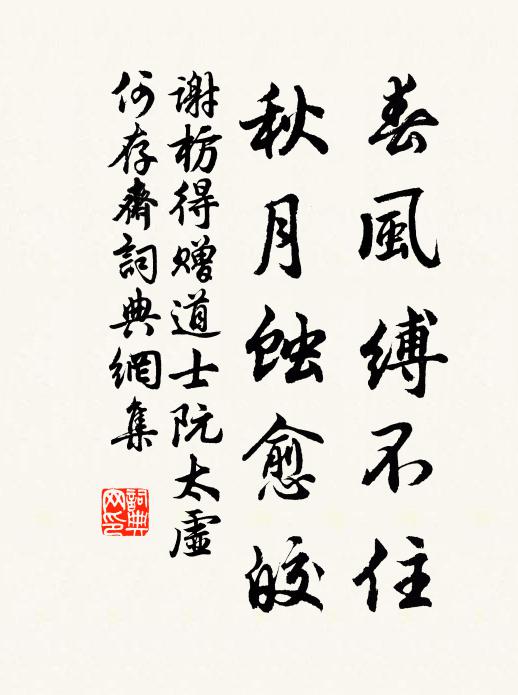 春風縛不住
秋月蝕愈皎
謝枋得贈道士阮太虛
何存齋詞典網集
詞典
网印